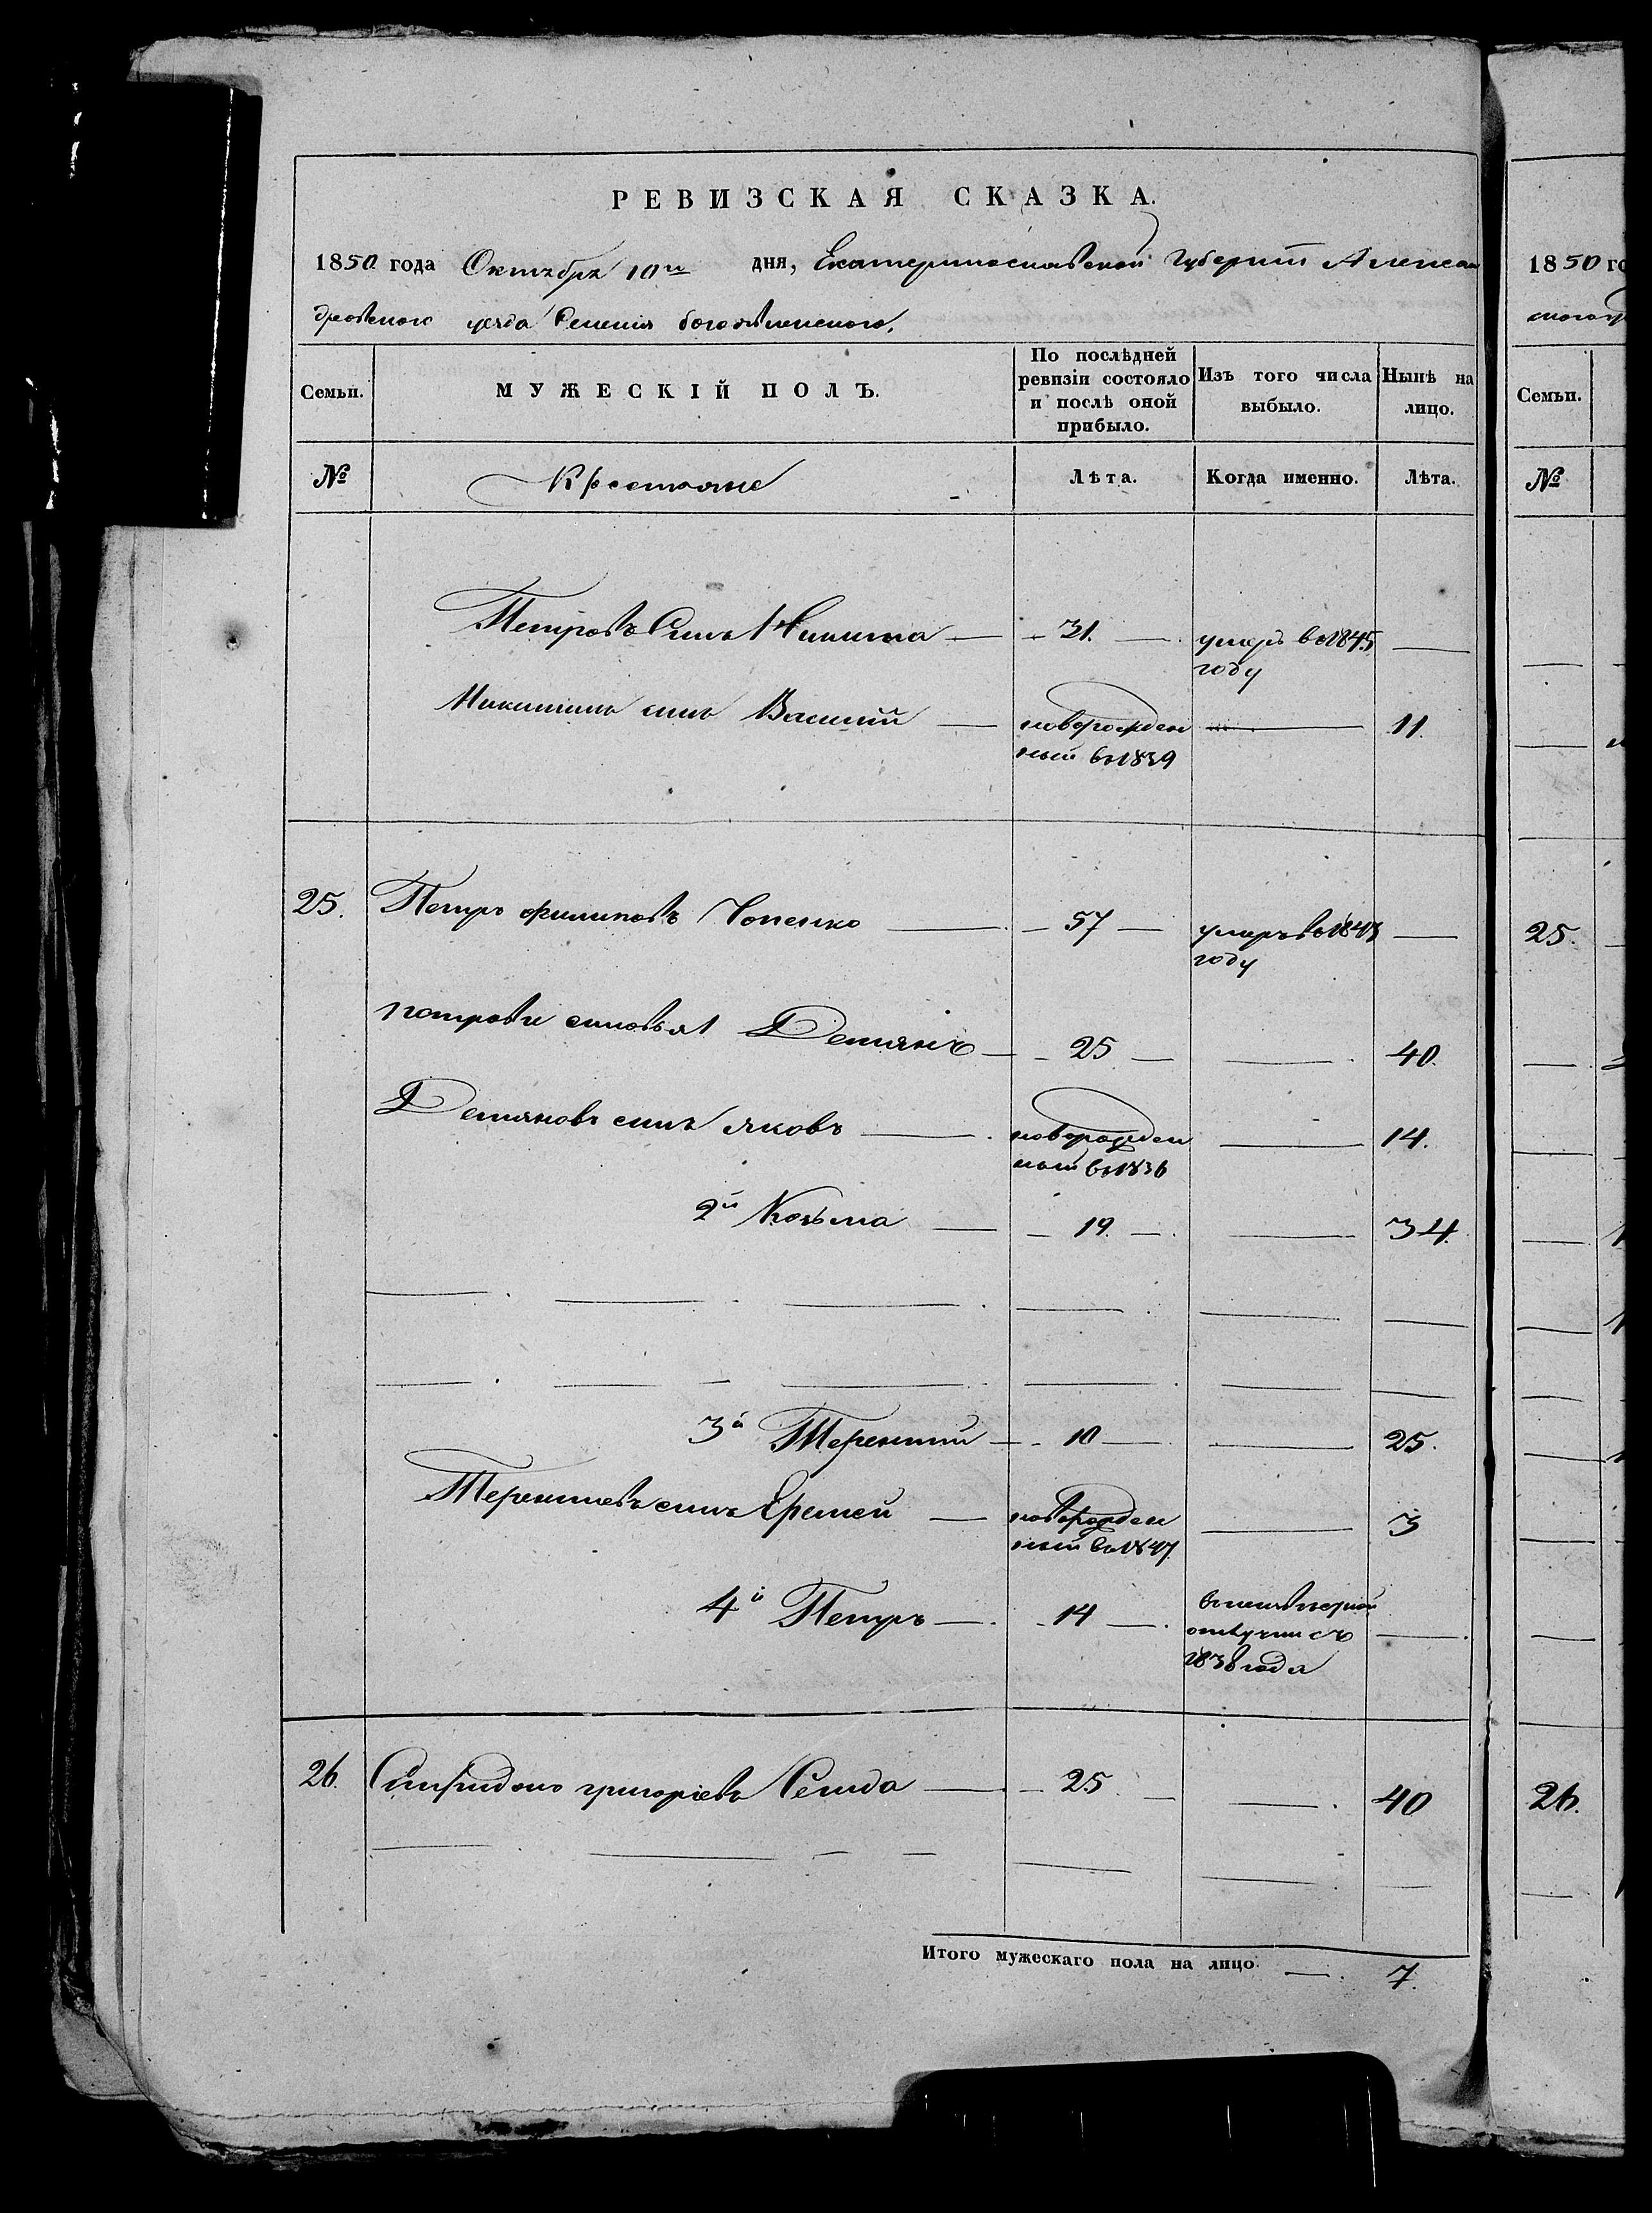 РЕВИЗСКАЯ СКАЗКА.
1850 года Октября 10го дня, Екатеринославской Губернии Алексан
дровского уезда Селения богоявленского.
Семьи. МУЖЕСКІЙ ПОЛЪ. По послѣдней ревизіи состояло и послѣ оной прибыло. Изъ того числа выбыло. Нынѣ на лицо.
№ Крестьяне Лѣта. Когда именно. Лѣта.
Петровъ Синъ Никита — 31. — умеръ в 1845 —
году
Никитинъ синъ Василий — новорожден — 11.
ный в 1839
25. Петръ филиповъ Чопенко — 57 — умеръ в 1845 —
году
петрови сыновья 1 Демянъ — 25 — 40.
Демяновъ синъ яковъ — новорожден — 14.
ный в 1836
2й Козьма — 19. — 34.
3й Терентий — 10 — 25.
Терентиевъ синъ Еремей — новорожден — 3
ный в 1847
4й Петръ — 14 —
отлучки съ —
1838 года
26. Спиридонъ григориевъ — 25 — 40
Итого мужескаго пола на лицо — 7.
1850 го
Семьи.
№
25.
26.